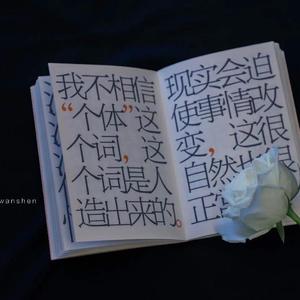 我不相信
“个体”这
个词，这
个词是人
造出来的。
现实会迫
使事情改
变，这很
自然也很
正常
wanshen